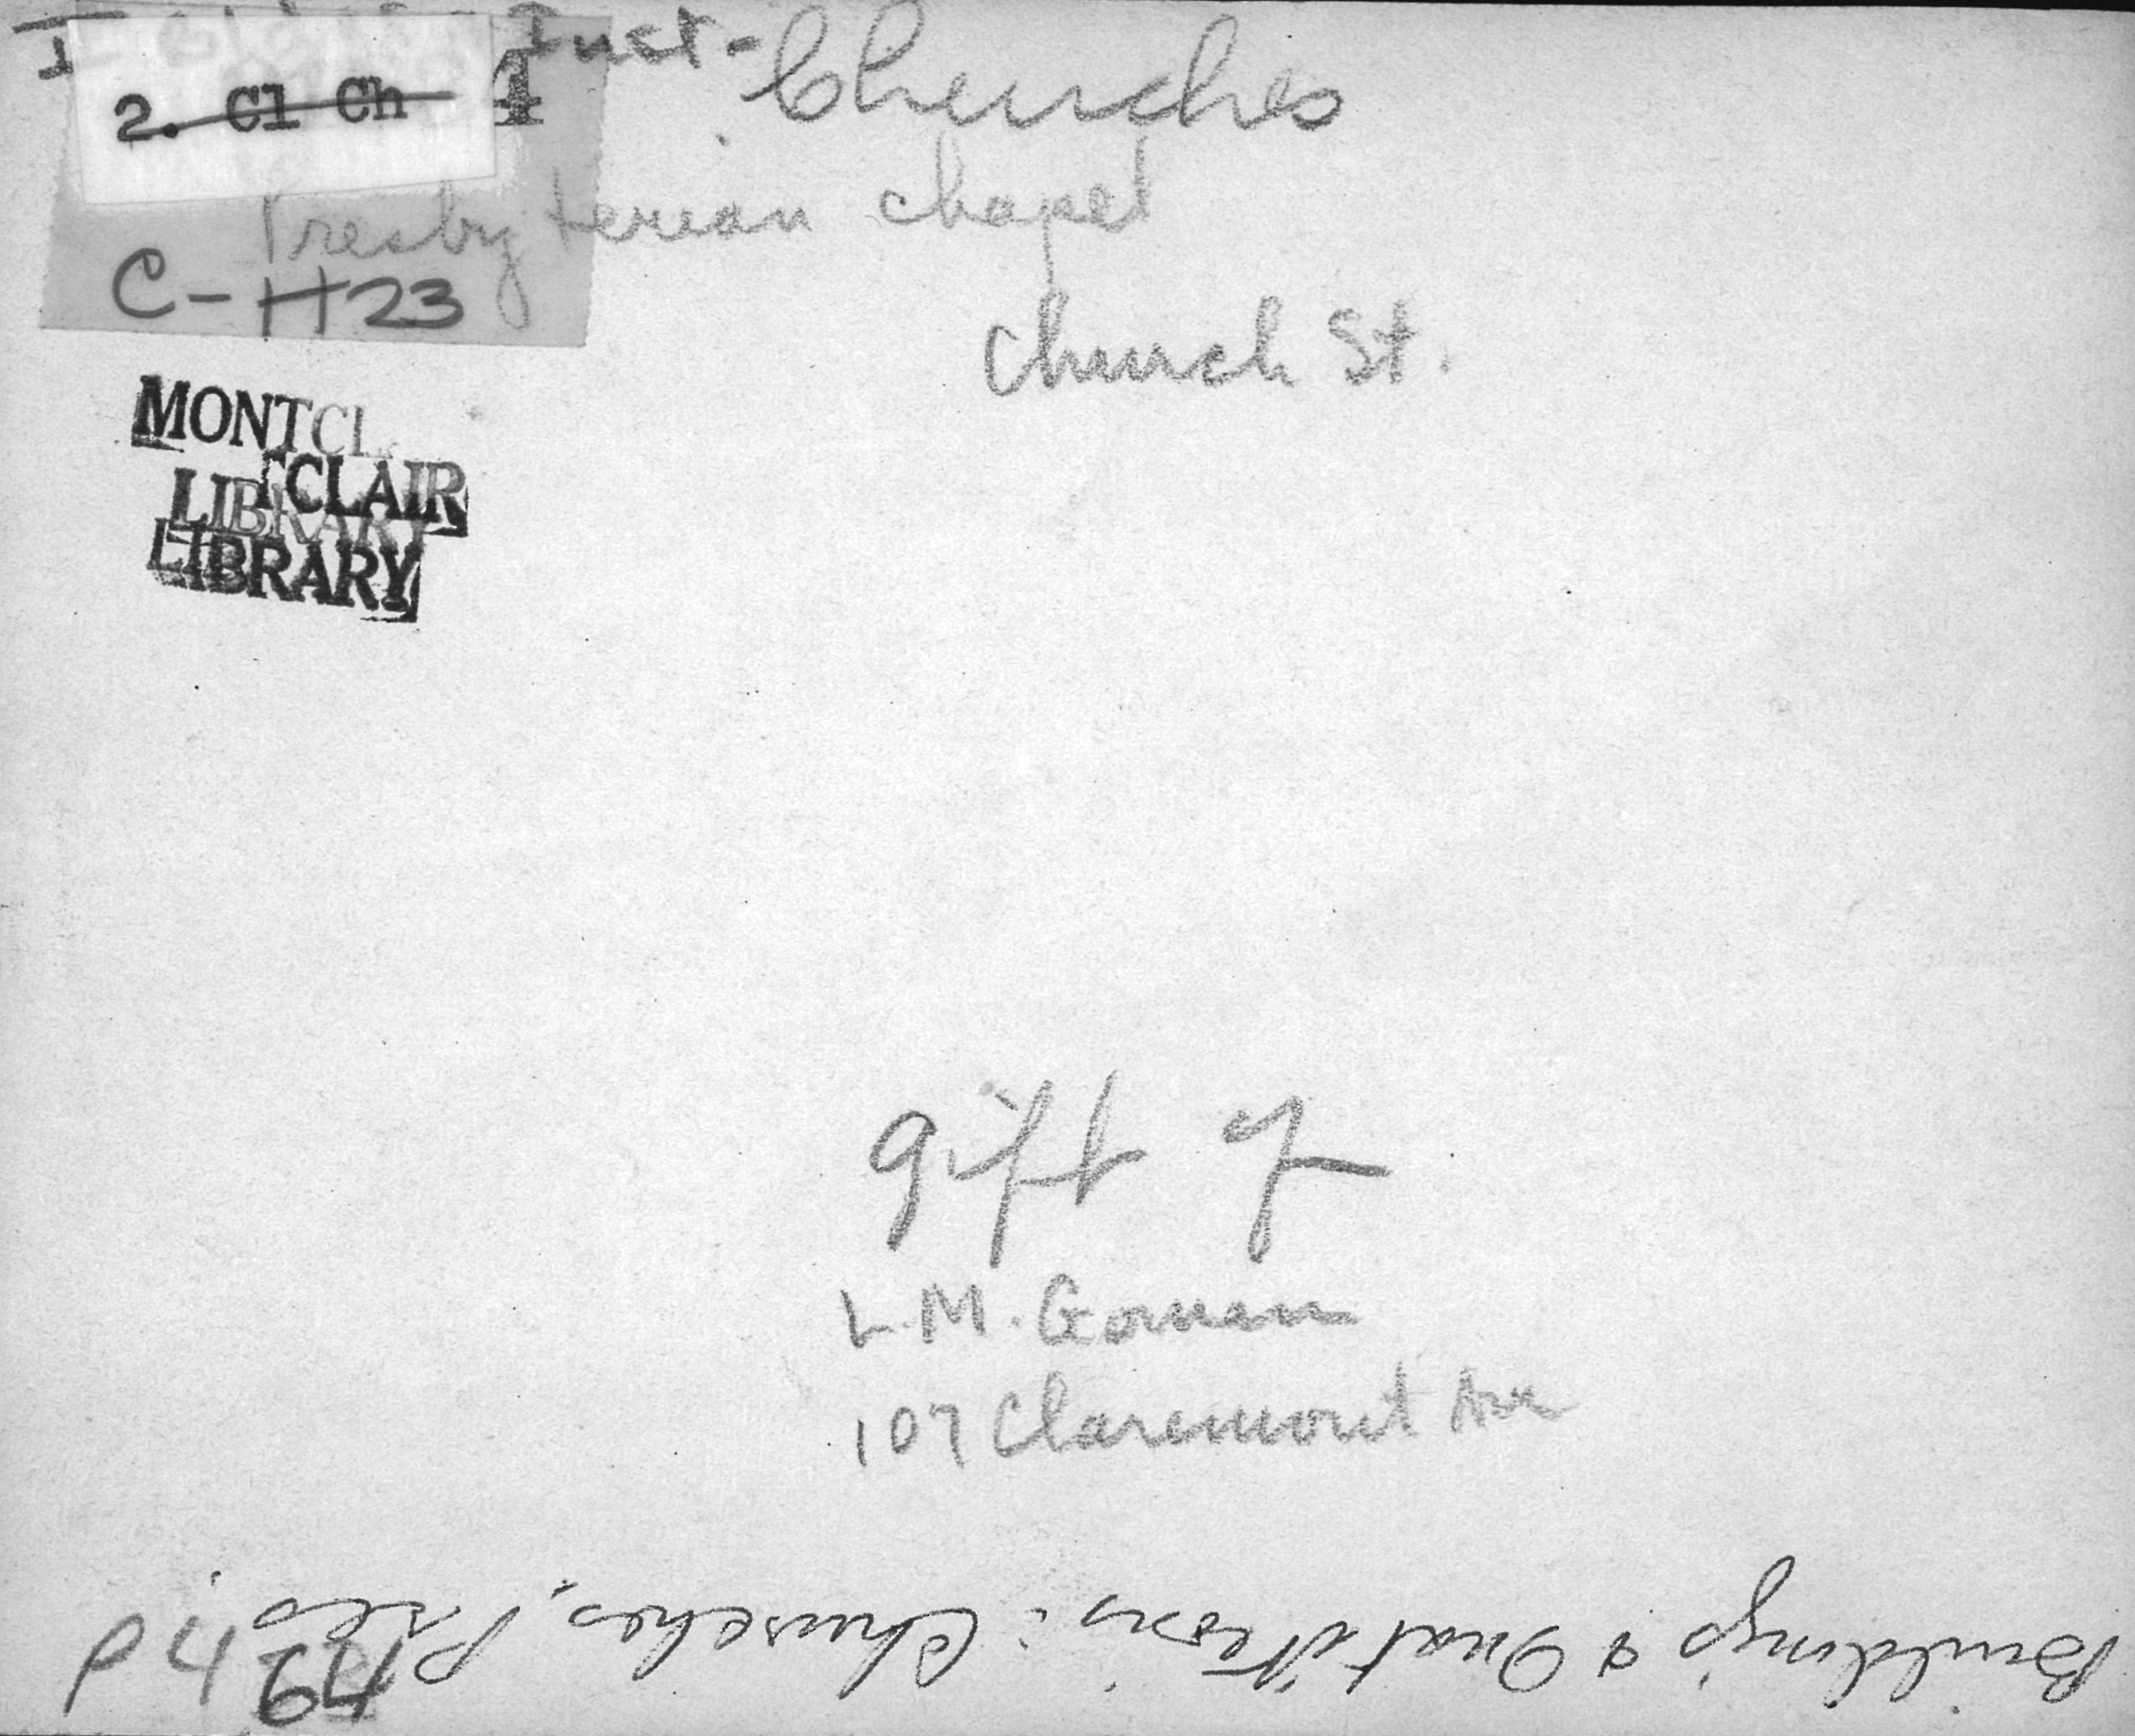 Inst - Churches
2. Cl Ch 4
Presbyterian chapel
C-H23
Church St.
MONTCLAIR
LIBRARY
gift of
L.M. Gowan
107 Claremont Ave
Buildings & Institutions: Churches, Pres.
P4